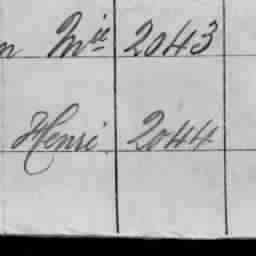 n Mie 2043
Henri 2044